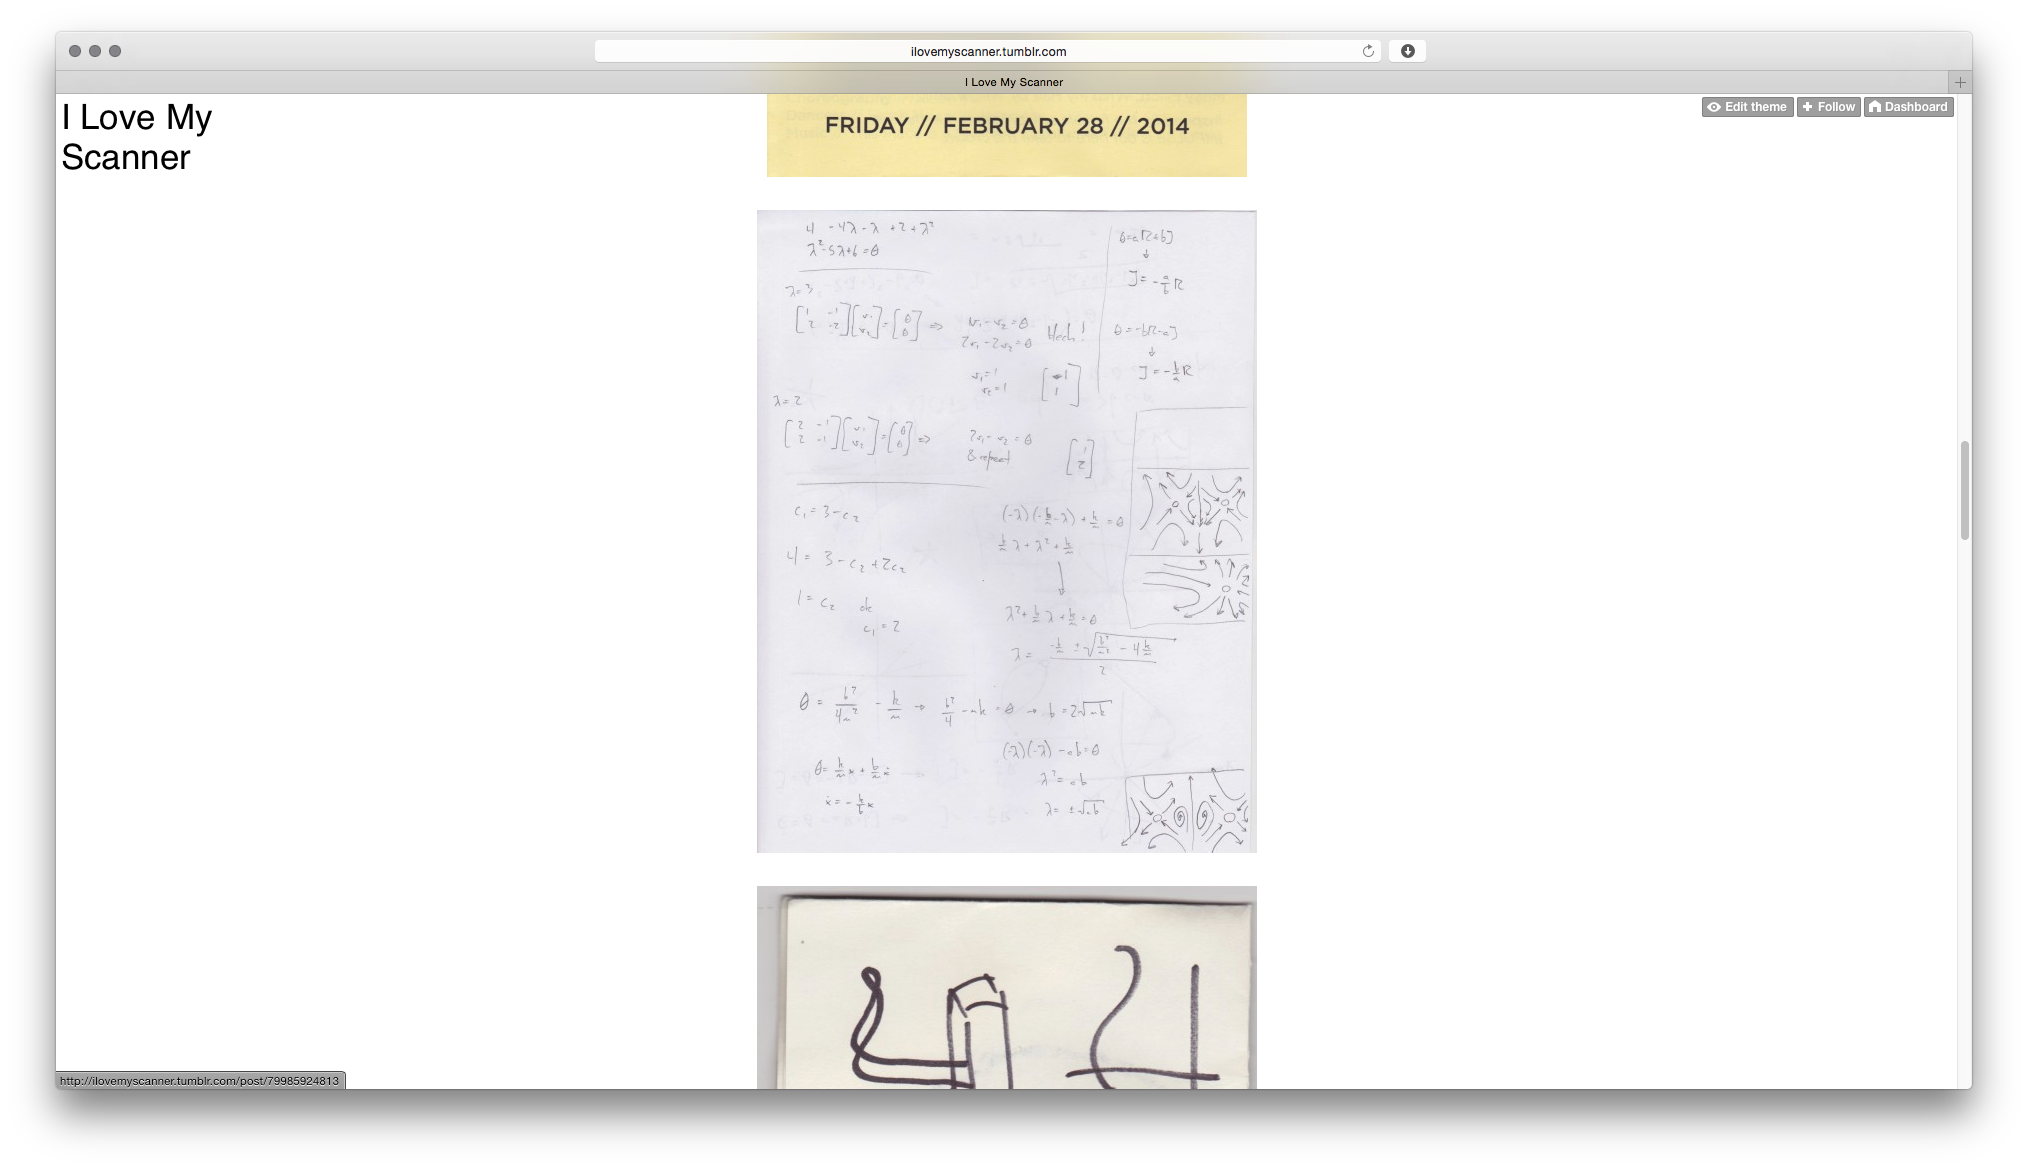 ilovemyscanner.tumblr.com
I Love My Scanner
I Love My
Scanner
Edit theme
Follow
Dashboard
FRIDAY // FEBRUARY 28 // 2014
4 - 4λ - λ + 2 + λ²
λ² - 5λ + 6 = 0
λ = 3
[1 -1; 2 -2][v₁; v₂] = [0; 0] ⇒
v₁ - v₂ = 0
2v₁ - 2v₂ = 0
Blech!
v₁ = 1
v₂ = 1
[1; 1]
0 = aR + bJ
↓
J = -a/b R
0 = -bR - aJ
↓
J = -b/a R
λ = 2
[2 -1; 2 -1][v₁; v₂] = [0; 0] ⇒
2v₁ - v₂ = 0
& repeat
[1; 2]
c₁ = 3 - c₂
4 = 3 - c₂ + 2c₂
1 = c₂ ok
c₁ = 2
(-λ)(-b/m - λ) + k/m = 0
b/m λ + λ² + k/m
λ² + b/m λ + k/m = 0
λ = (-b/m ± √(b²/m² - 4 k/m)) / 2
0 = b²/4m² - k/m → b²/4 - mk = 0 → b = 2√mk
0 = k/m x + b/m ẋ
ẋ = -k/b x
(-λ)(-λ) - ab = 0
λ² = ab
λ = ±√ab
http://ilovemyscanner.tumblr.com/post/79985924813